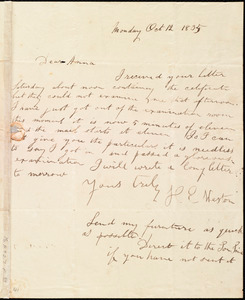 Monday Oct 12 1835
Dear Anna
I received your letter
Saturday about noon containing the certificate
but they could not examine me that afternoon.
I have just got out of the examination room
this moment it is now 5 minutes of eleven
and the mail starts at eleven So I can
not give you the particulars it is needless
to say I got in and passed a glorious
examination I will write a long letter
to morrow
Yours Only
Weston
Send my furniture as quick
as possible
Direct it to the
if you have not sent it